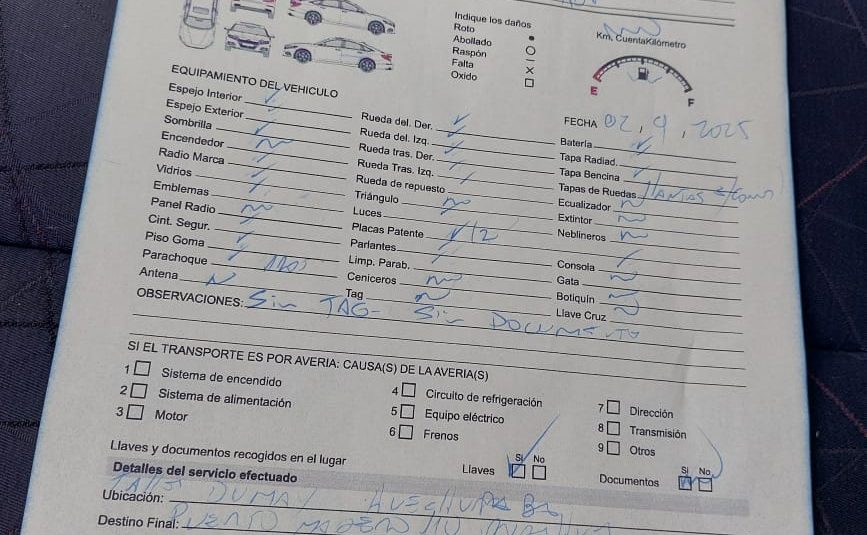 Indique los daños
Roto
Abollado
Raspón
Falta
Oxido
Km. CuentaKilómetro
E F
EQUIPAMIENTO DEL VEHICULO
FECHA 02, 9, 2025
Espejo Interior
Espejo Exterior
Sombrilla
Encendedor
Radio Marca
Vidrios
Emblemas
Panel Radio
Cint. Segur.
Piso Goma
Parachoque
Antena N
Rueda del. Der.
Rueda del. Izq.
Rueda tras. Der.
Rueda Tras. Izq.
Rueda de repuesto
Triángulo
Luces
Placas Patente /2
Parlantes
Limp. Parab.
Ceniceros
Tag
Batería
Tapa Radiad.
Tapa Bencina
Tapas de Ruedas llantas
Ecualizador
Extintor
Neblineros
Consola
Gata
Botiquin
Llave Cruz
OBSERVACIONES: Sin TAG - Sin DOCUMENTO
SI EL TRANSPORTE ES POR AVERIA: CAUSA(S) DE LA AVERIA(S)
1 Sistema de encendido
2 Sistema de alimentación
3 Motor
4 Circuito de refrigeración
5 Equipo eléctrico
6 Frenos
7 Dirección
8 Transmisión
9 Otros
Llaves y documentos recogidos en el lugar
Llaves Si No
Documentos Si No
Detalles del servicio efectuado
Ubicación:
Destino Final: PUERTO MADERO